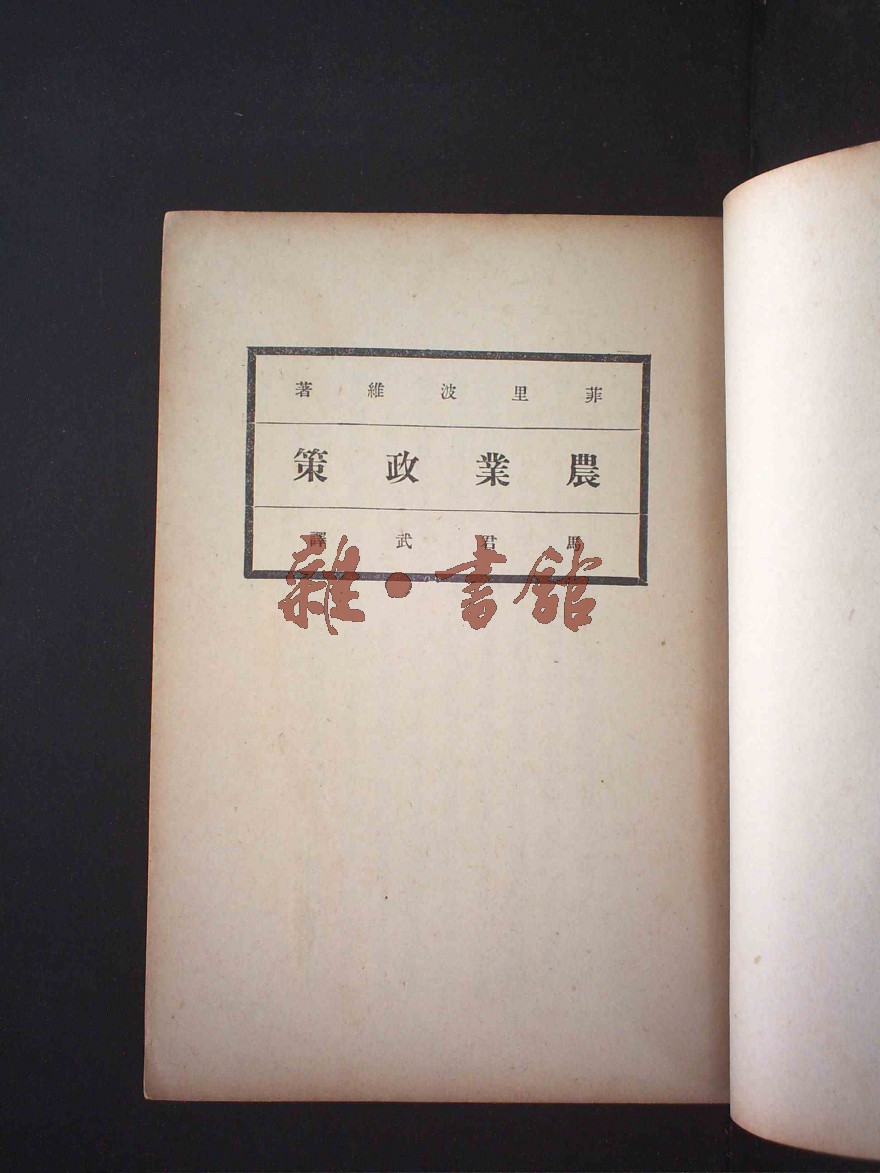 菲里波維著
農業政策
馬君武譯
雜·書館